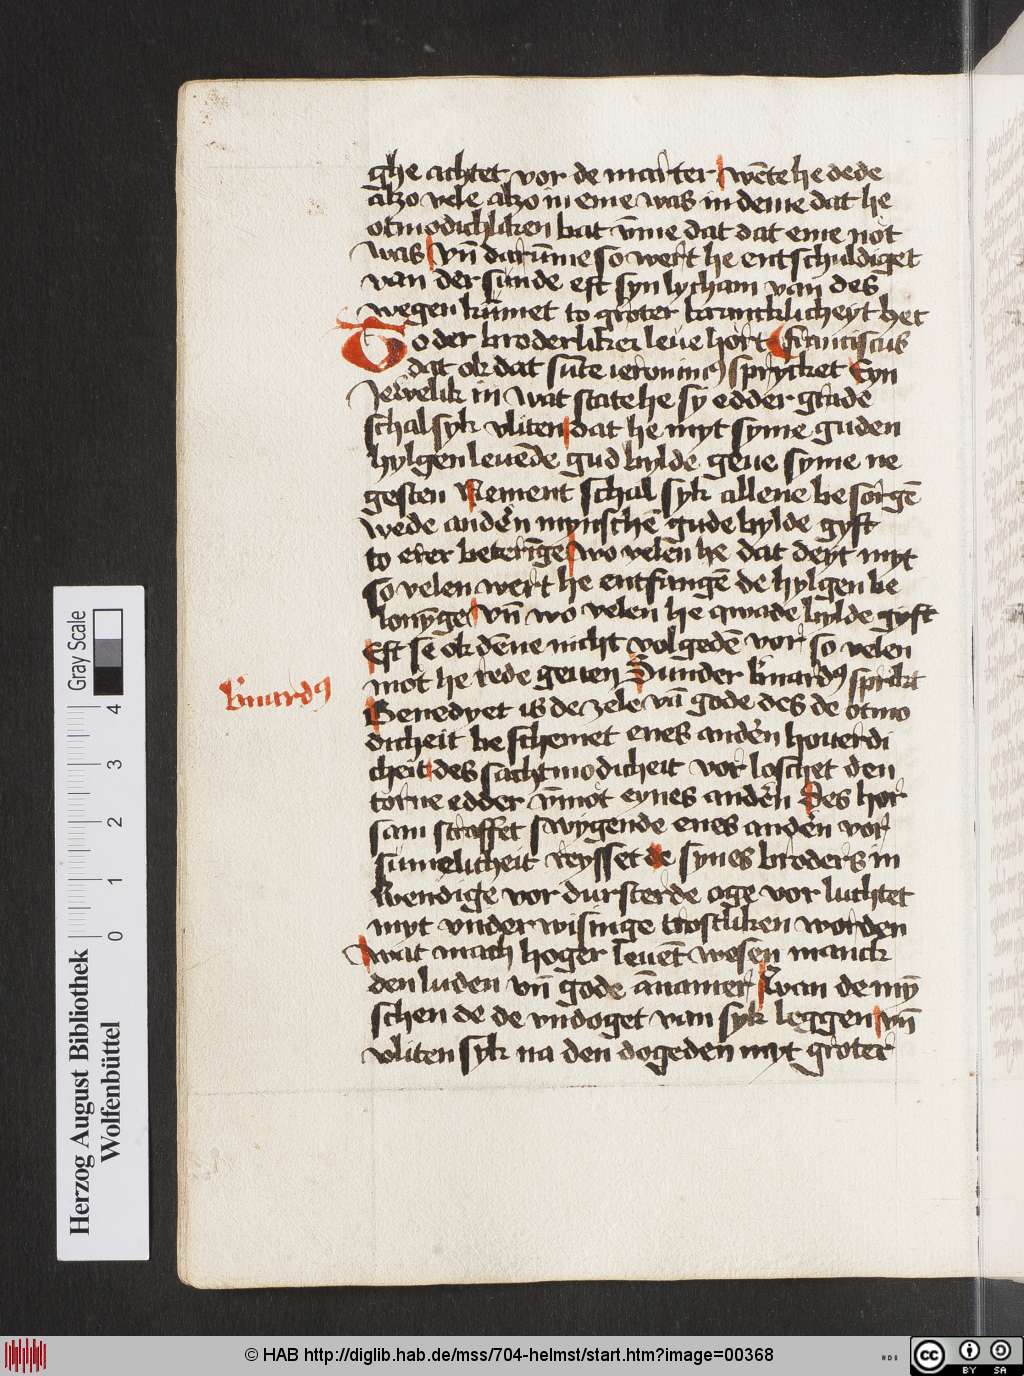 ghe achtet vor de marter wēte he dede
alzo vele alzo in eme was in deme dat he
otmodichliken bat v̄me dat dat eme not
was vn̄ darūme so wert he entschuldiget
van der sunde eft syn lycham van des
wegen kūmet to groter krancklicheyt her
To der broderliker leue hort Franciscus
dat ok dat sūte ieronimꝰ sprycket Eyn
Jewelik in wat state he sy edder grade
schal syk vliten dat he myt syme guden
hylgen leuēde gud bylde geue syme ne
gesten Nement schal syk allene besorgē
wede andern mynschē gude bylde gyft
to erer beterīge wo velen he dat deyt myt
so velen wert he entfangē de hylgen be
lonȳge vn̄ wo velen he qwade bylde gyft
Eft se ok dēne nicht volgedē vor so velen
mot he rede geuen Sunder b'nardꝰ sprikt
B'nardꝰ
Benedyet is de zele vn̄ gode des de otmo
dicheit beschemet enes andern houerdi
cheit des sachtmodicheit vor loschet den
torne edder v̄mot eynes andern Des hor
sam straffet swygende enes andern vor
sumelicheit reysset de synes broders in
wendige vor dursterde oge vor luchtet
myt vnderwisinge trostliken worden
wat mach hoger leuēt wesen manck
den luden vn̄ gode ānamer wan de mȳ
schen de de vndoget van syk leggen vn̄
vliten syk na den dogeden myt groter
Gray Scale
4
3
2
1
0
Herzog August Bibliothek
Wolfenbüttel
© HAB http://diglib.hab.de/mss/704-helmst/start.htm?image=00368
cc BY SA